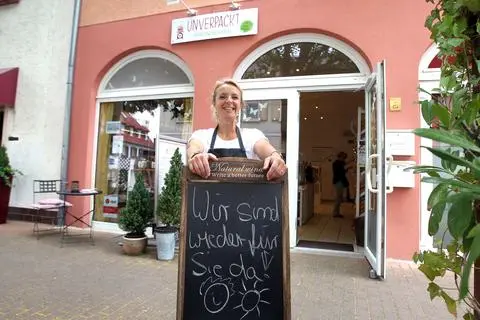 UNVERPACKT
Naturalwine
Wir sind
wieder für
Sie da!